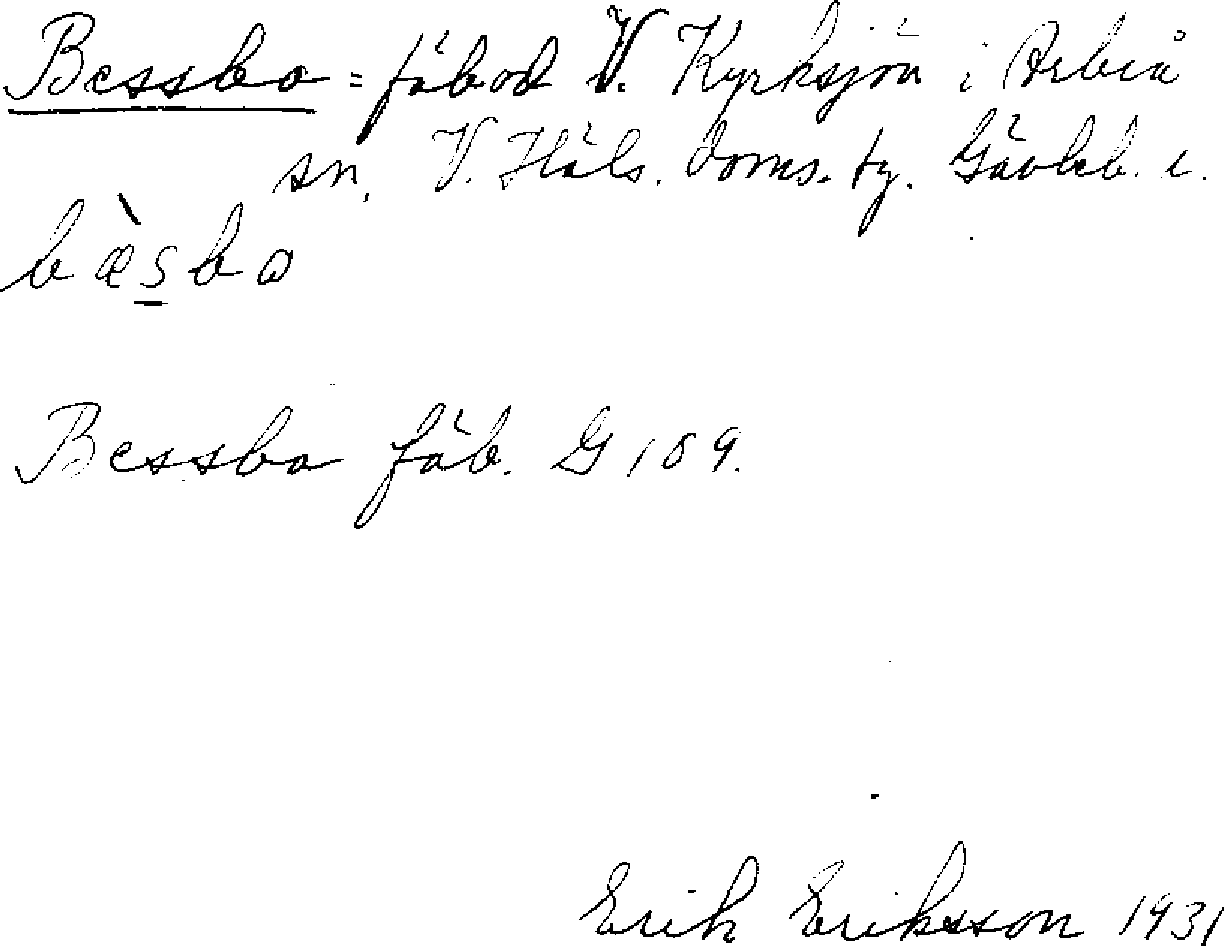 Bessbo = fäbod V. Kyrksjön i Arbrå
sn. V. Häls. doms. fg. Gävleb. l.
bæ̀s̲bo
Bessbo fäb. G 109.
Erik Eriksson 1931